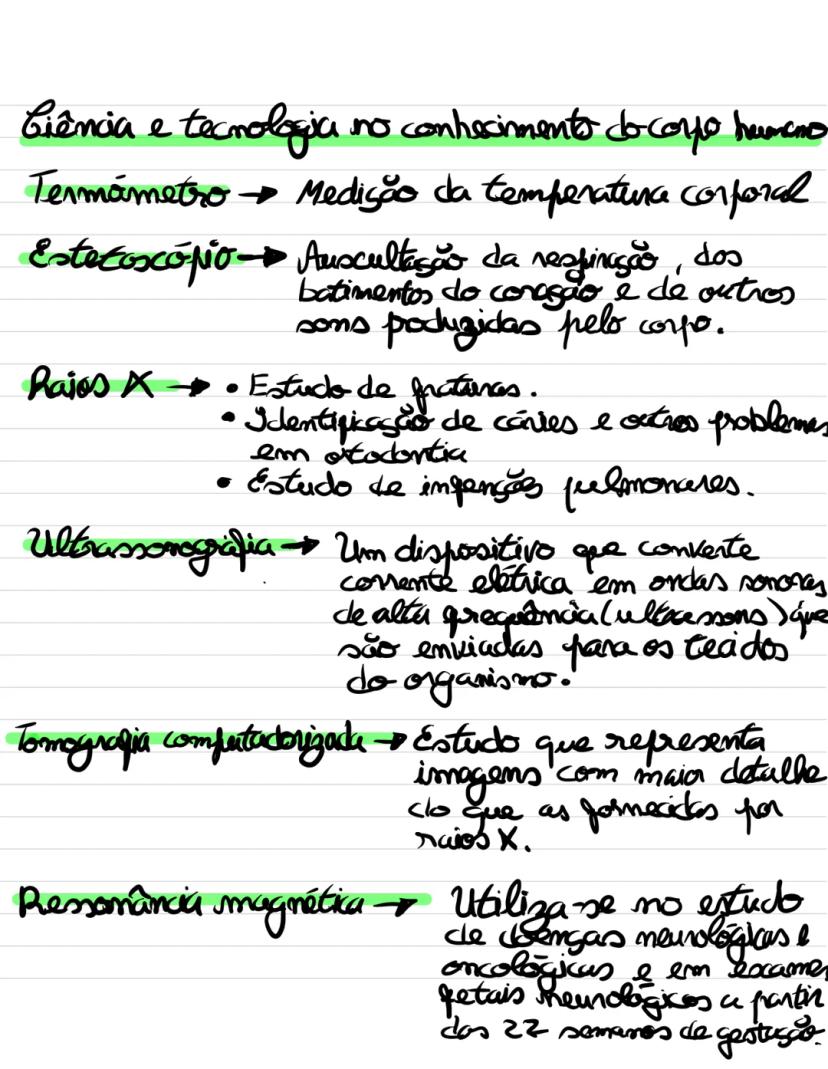 Ciência e tecnologia no conhecimento do corpo humano
Termómetro → Medição da temperatura corporal
Estetoscópio → Auscultação da respiração, dos
batimentos do coração e de outros
sons produzidas pelo corpo.
Raios X → • Estudo de fraturas.
• Identificação de cáries e outros problemas
em otodontia
• Estudo de infenções pulmonares.
Ultrassonografia → Um dispositivo que converte
corrente elétrica em ondas sonoras
de alta frequência (ultrassons) que
são enviadas para os tecidos
do organismo.
Tomografia computadorizada → Estudo que representa
imagens com maior detalhe
do que as fornecidas por
raios X.
Ressonância magnética → Utiliza-se no estudo
de doenças neurológicas e
oncológicas e em exames
fetais neurológicos a partir
das 22 semanas de gestação.